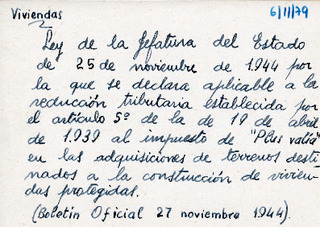 Viviendas
6/11/79
Ley de la Jefatura del Estado
de 25 de noviembre de 1944 por
la que se declara aplicable a la
reducción tributaria establecida por
el artículo 5º de la de 19 de abril
de 1939 al impuesto de "Plus valía"
en las adquisiciones de terrenos desti
nados a la construcción de vivien-
das protegidas.
(Boletín Oficial 27 noviembre 1944).